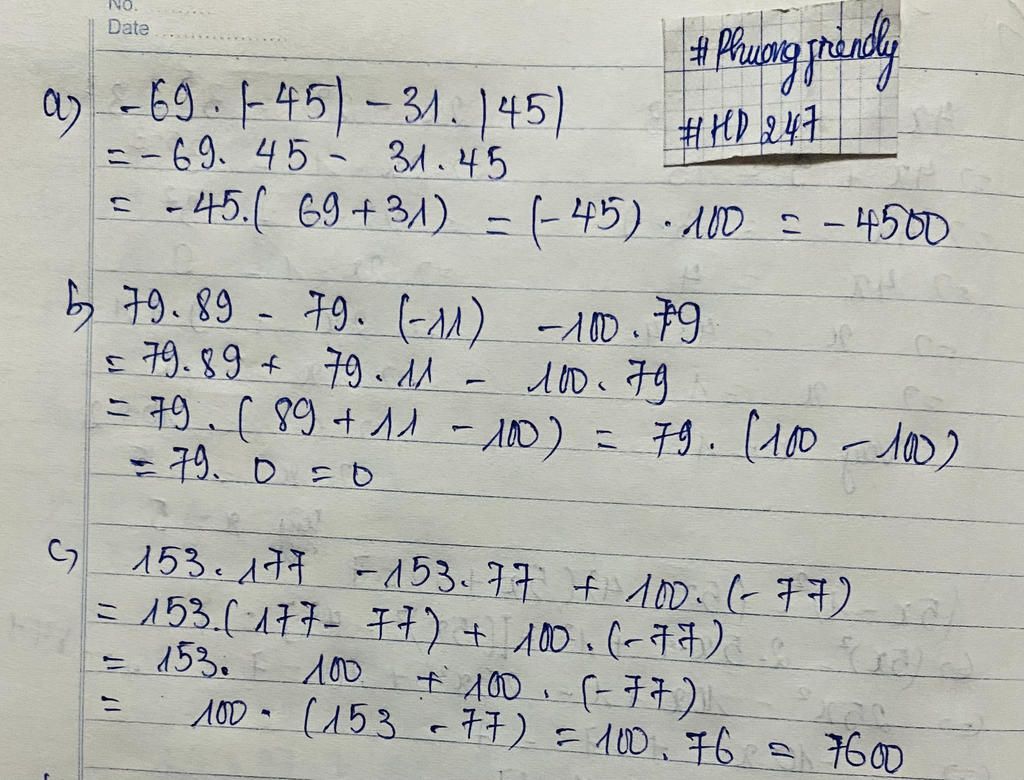 No.
Date
#Phuong friendly
#HD 247
a) -69 . |-45| - 31. |45|
= -69. 45 - 31.45
= -45.( 69+31) = (-45) . 100 = -4500
b) 79.89 - 79. (-11) -100. 79
= 79.89 + 79.11 - 100. 79
= 79. ( 89 + 11 - 100) = 79. (100 - 100)
= 79. 0 = 0
c) 153.177 -153.77 + 100. (-77)
= 153.(177- 77) + 100.(-77)
= 153. 100 + 100. (-77)
= 100. (153 -77) = 100. 76 = 7600